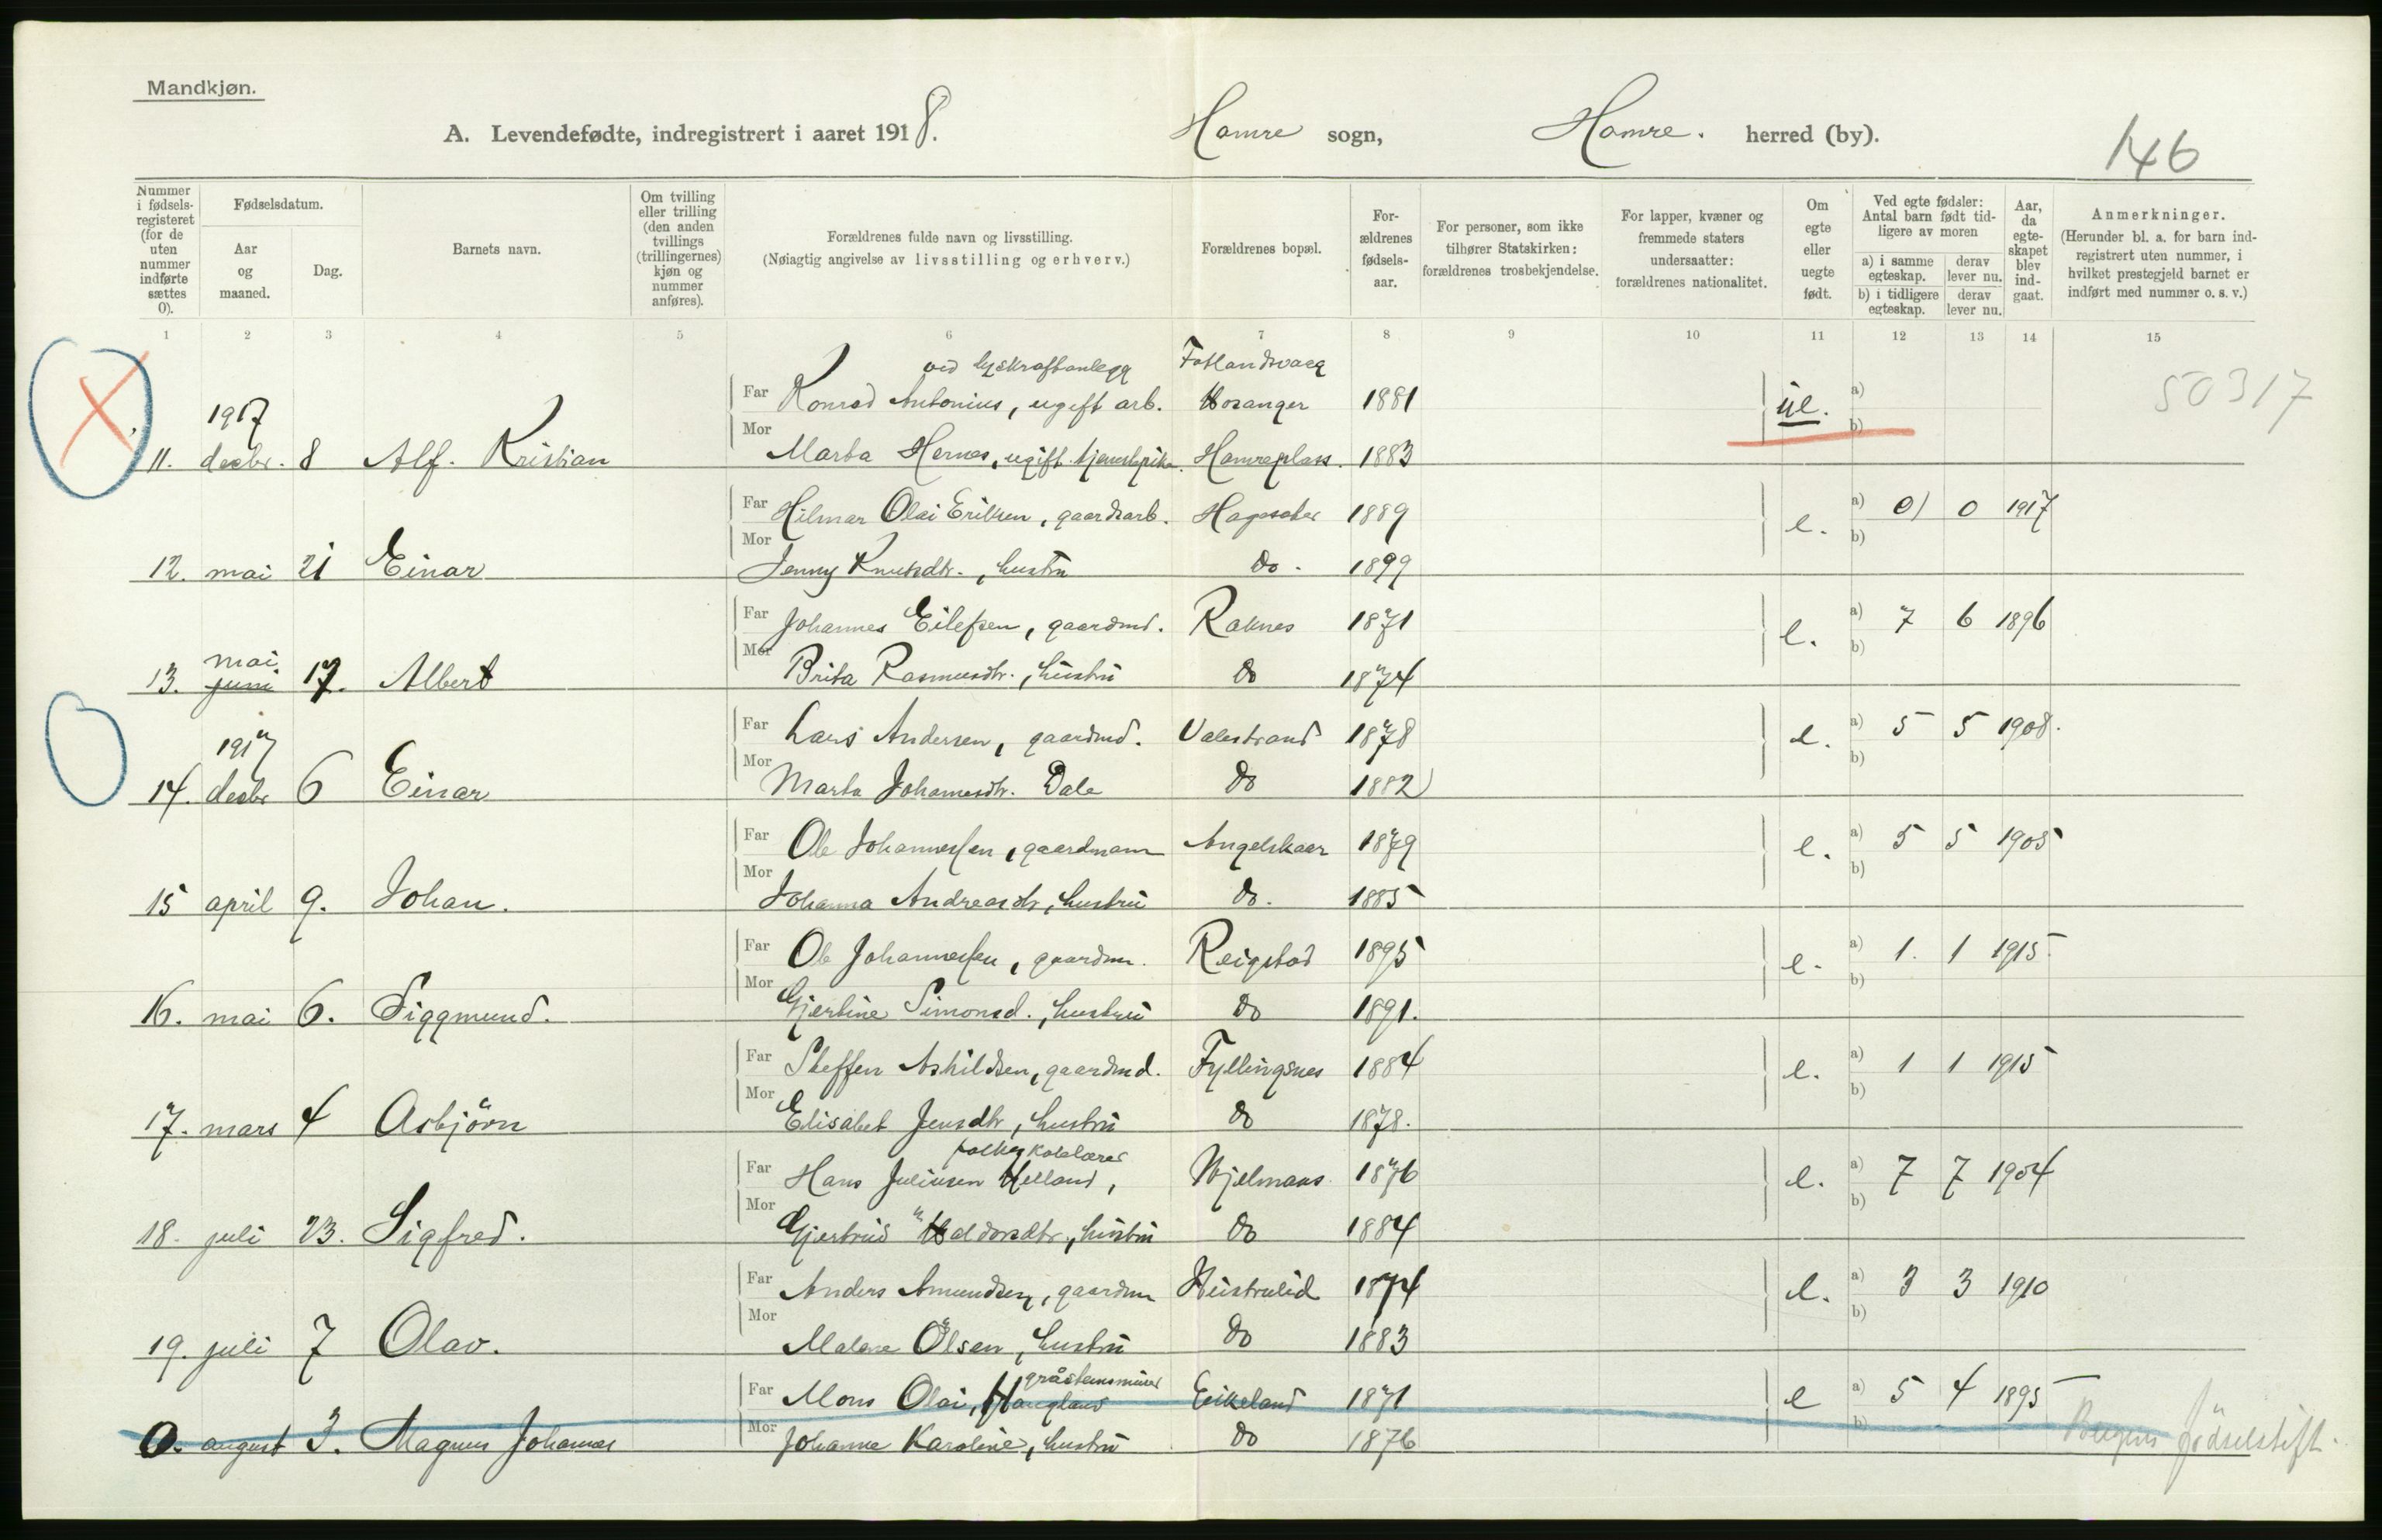 Mandkjøn.
A. Levendefødte, indregistrert i aaret 1918. Hamre sogn, Hamre. herred (by).
146
Nummer i fødselsregisteret (for de uten nummer indførte sættes 0).
Fødselsdatum.
Aar og maaned.
Dag.
Barnets navn.
Om tvilling eller trilling (den anden tvillings (trillingernes) kjøn og nummer anføres).
Forældrenes fulde navn og livsstilling.
(Nøiagtig angivelse av livsstilling og erhverv.)
Forældrenes bopæl.
Forældrenes fødselsaar.
For personer, som ikke tilhører Statskirken: forældrenes trosbekjendelse.
For lapper, kvæner og fremmede staters undersaatter: forældrenes nationalitet.
Om egte eller uegte født.
Ved egte fødsler: Antal barn født tidligere av moren
a) i samme egteskap. derav lever nu.
b) i tidligere egteskap. derav lever nu.
Aar, da egteskapet blev indgaat.
Anmerkninger.
(Herunder bl. a. for barn indregistrert uten nummer, i hvilket prestegjeld barnet er indført med nummer o. s. v.)
1 2 3 4 5 6 7 8 9 10 11 12 13 14 15
ved lyskraftanlegg
Far Konrad Antonius, ugift arb. Hosanger 1881 ue. a) 50317
1917
Mor b)
11. decbr. 8 Alf. Kristian Marta Hernes, ugift Hamreplass. 1883
Far Hilmar Olai Eriksen, gaardsarb. 1889 e. a) 0 0 1917
Mor b)
12. mai 21 Einar Jenny Knutsdtr., hustru do. 1899
Far Johannes Eilefsen, gaardmd. Raknes 1871 e. a) 7 6 1896
Mor b)
mai
13. juni 17. Albert Brita Rasmusdtr., hustru do 1874
Far Lars Andersen, gaardmd. Valestrand 1878 e. a) 5 5 1908.
1917
Mor b)
14. decbr 6 Einar Marta Johannesdtr. Dale do 1882
Far Ole Johannessen, gaardmann Angelskaar 1879 e. a) 5 5 1905
Mor b)
15 april 9. Johan. Johanna Andreasdtr, hustru do. 1885
Far Ole Johannessen, gaardm. Reigstad 1895 e. a) 1. 1 1915.
Mor b)
16. mai 6. Siggmund. Gjertine Simonsd., hustru do 1891.
Far Steffen Askildsen, gaardmd. Fyllingsnes 1884 e. a) 1 1 1915
Mor b)
17. mars 4 Asbjörn Elisabet Jensdtr, hustru do 1878.
folkeskolelærer
Far Hans Juliusen Helland, Hjelmaas 1876 e. a) 7 7 1904
Mor b)
18. juli 23. Sigfred. Gjertrud Haldorsdtr., hustru do 1884
Far Anders Amundsen, gaardm 1874 e. a) 3 3 1910
Mor b)
19. juli 7 Olav. Malene Olsen, hustru do 1883
gråstensmurer
Far Mons Olai, Haugland Eikeland 1871 e a) 5 4 1895
Mor b)
0. august 3. Magnus Johannes Johanne Karoline, hustru do 1876 Bergens födselstift.